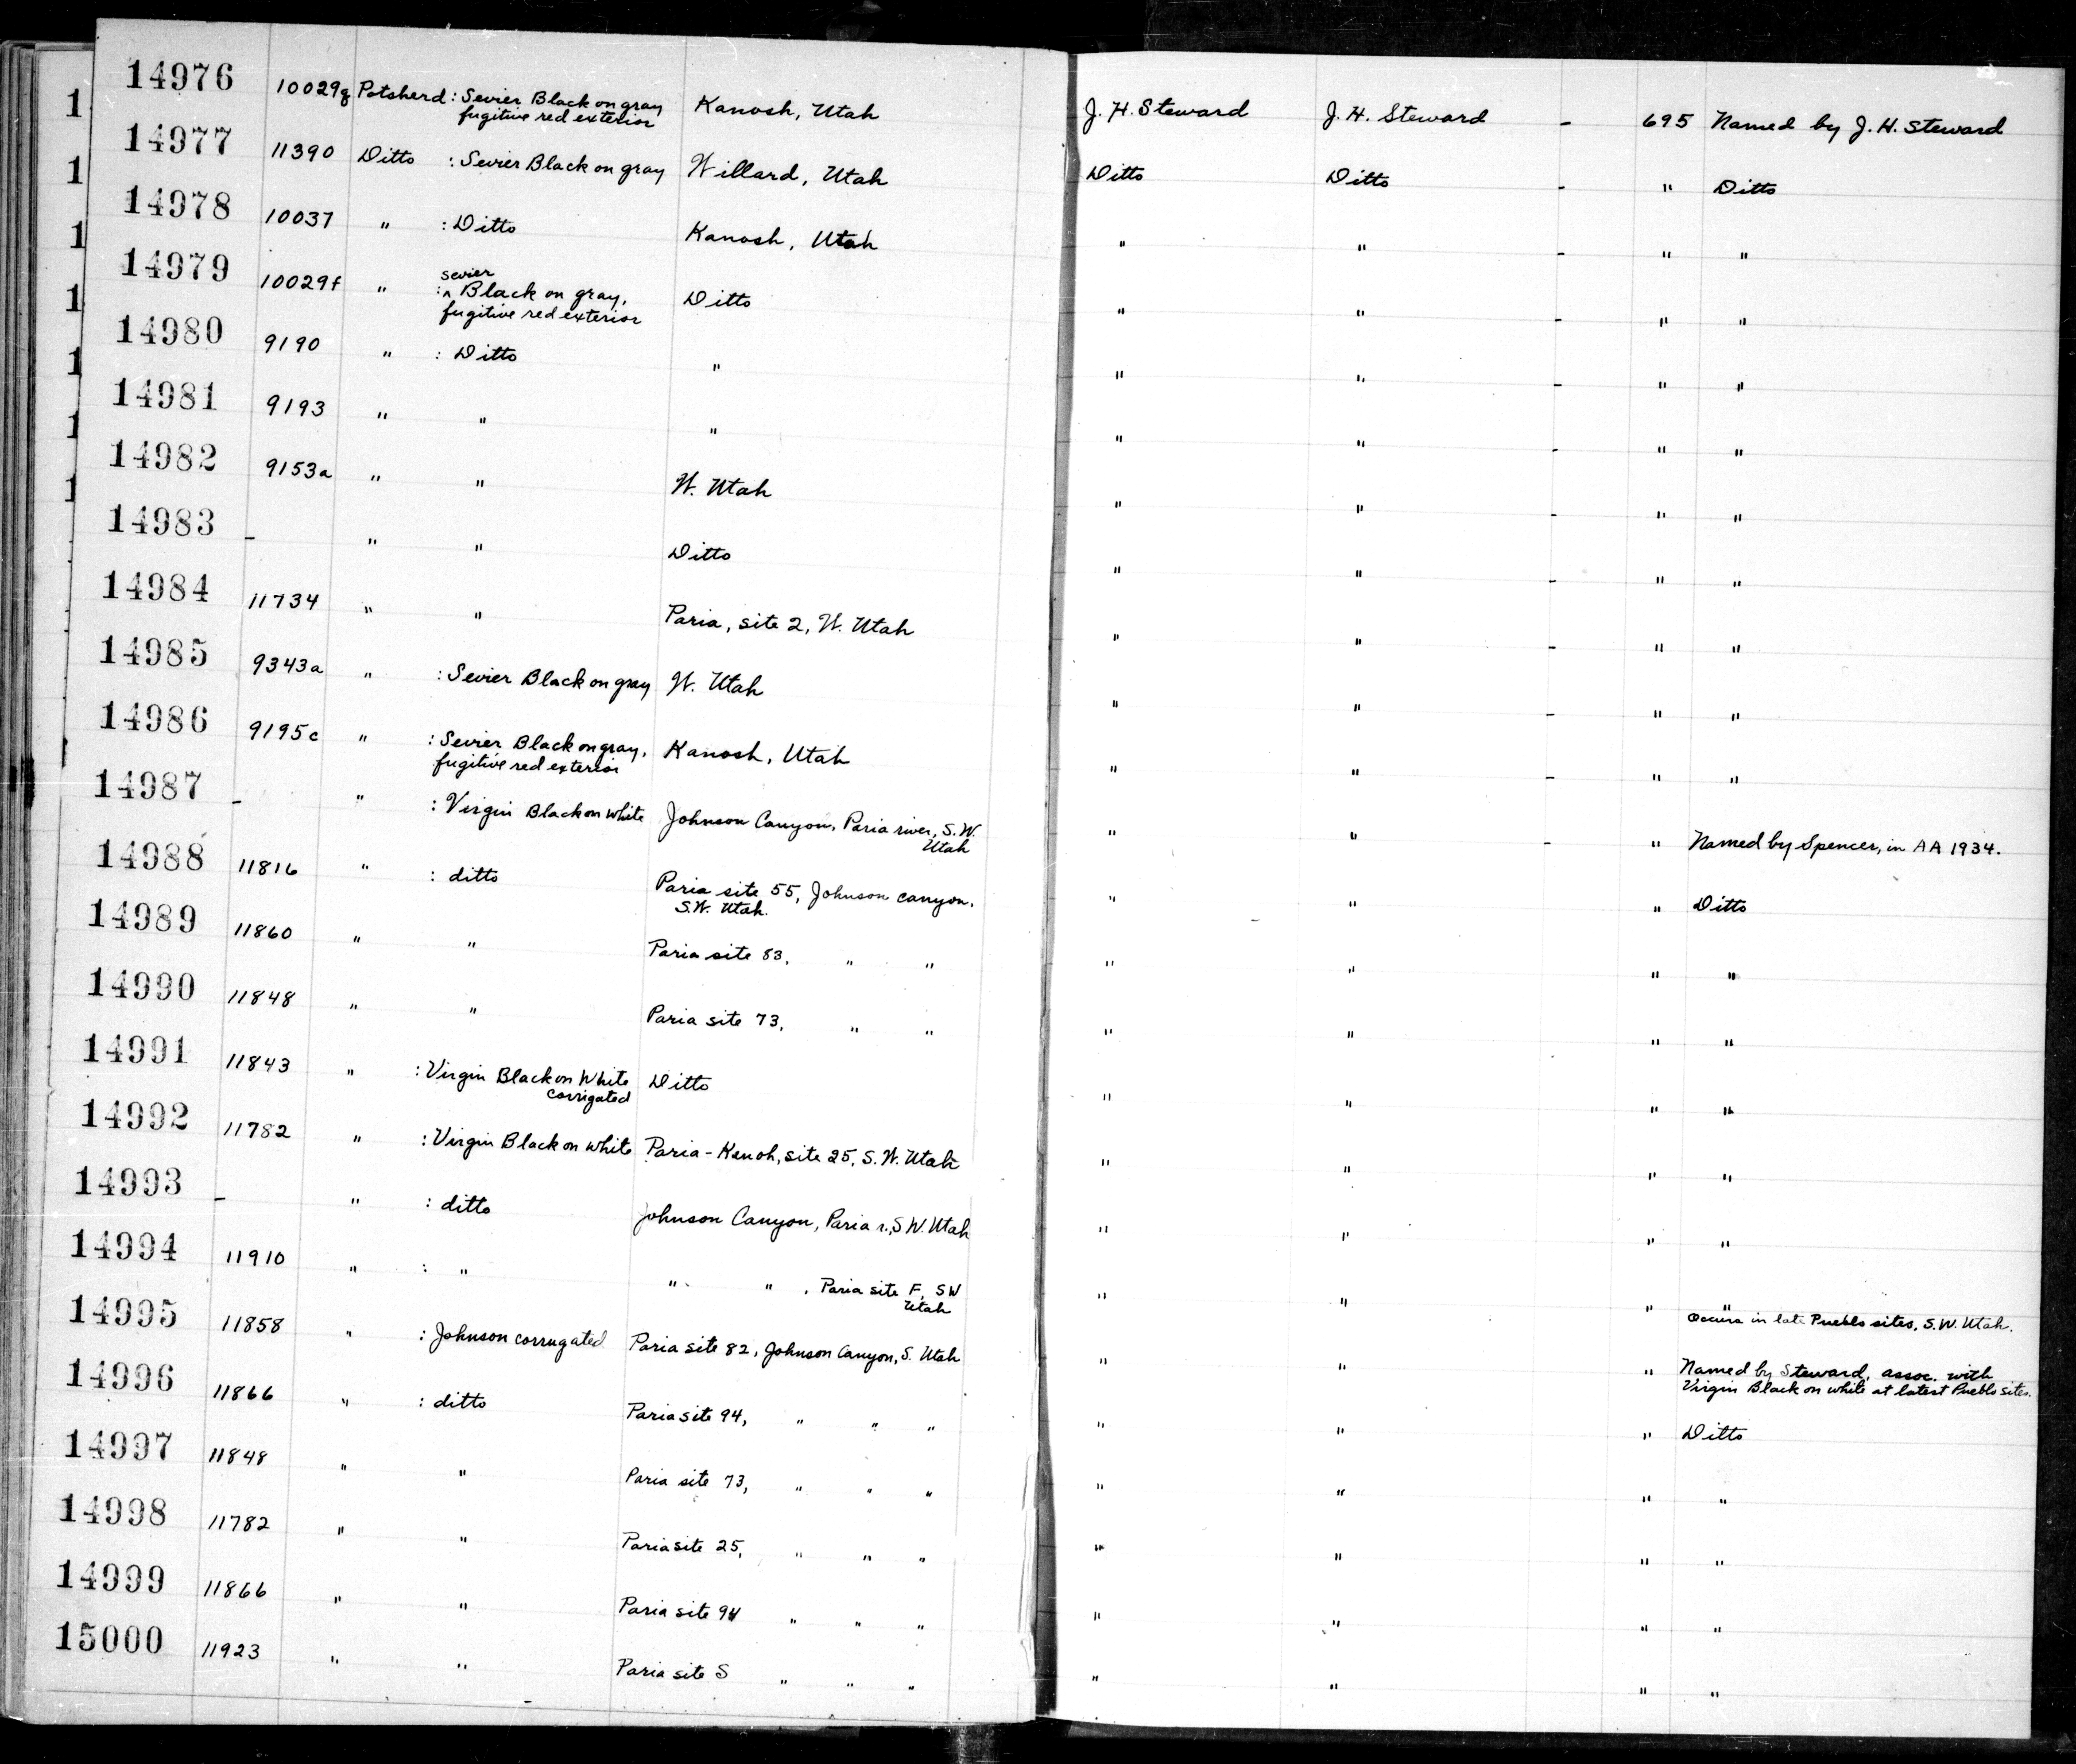 14976 10029g Potsherd : Sevier Black on gray Kanosh, Utah J. H. Steward J. H. Steward - 695 Named by J. H. Steward
fugitive red exterior
14977 11390 Ditto : Sevier Black on gray Willard, Utah Ditto Ditto - " Ditto
14978 10037 " : Ditto Kanosh, Utah " " - " "
sevier
14979 10029f " : ^ Black on gray, Ditto " " - " "
fugitive red exterior
14980 9190 " : Ditto " " " - " "
14981 9193 " " " " " - " "
14982 9153a " " W. Utah " " - " "
14983 - " " Ditto " " - " "
14984 11734 " " Paria, site 2, W. Utah " " - " "
14985 9343a " : Sevier Black on gray W. Utah " " - " "
14986 9195c " : Sevier Black on gray, Kanosh, Utah " " - " "
fugitive red exterior
14987 - " : Virgin Black on white Johnson Canyon, Paria river, S.W. " " - " Named by Spencer, in AA 1934.
Utah
14988 11816 " : ditto Paria site 55, Johnson canyon, " " " Ditto
S.W. Utah.
14989 11860 " " Paria site 83, " " " " " "
14990 11848 " " Paria site 73, " " " " " "
14991 11843 " : Virgin Black on White Ditto " " " "
corrigated
14992 11782 " : Virgin Black on white Paria - Kanoh, site 25, S.W. Utah " " " "
14993 - " : ditto Johnson Canyon, Paria r., S W. Utah " " " "
14994 11910 " : " " " , Paria site F, SW " " " "
Utah Occurs in late Pueblo sites, S.W. Utah.
14995 11858 " : Johnson corrugated Paria site 82, Johnson Canyon, S. Utah " " " Named by Steward, assoc. with
Virgin Black on white at latest Pueblo sites.
14996 11866 " : ditto Paria site 94, " " " " " " Ditto
14997 11848 " " Paria site 73, " " " " " " "
14998 11782 " " Paria site 25, " " " " " " "
14999 11866 " " Paria site 94 " " " " " " "
15000 11923 " " Paria site S " " " " " " "